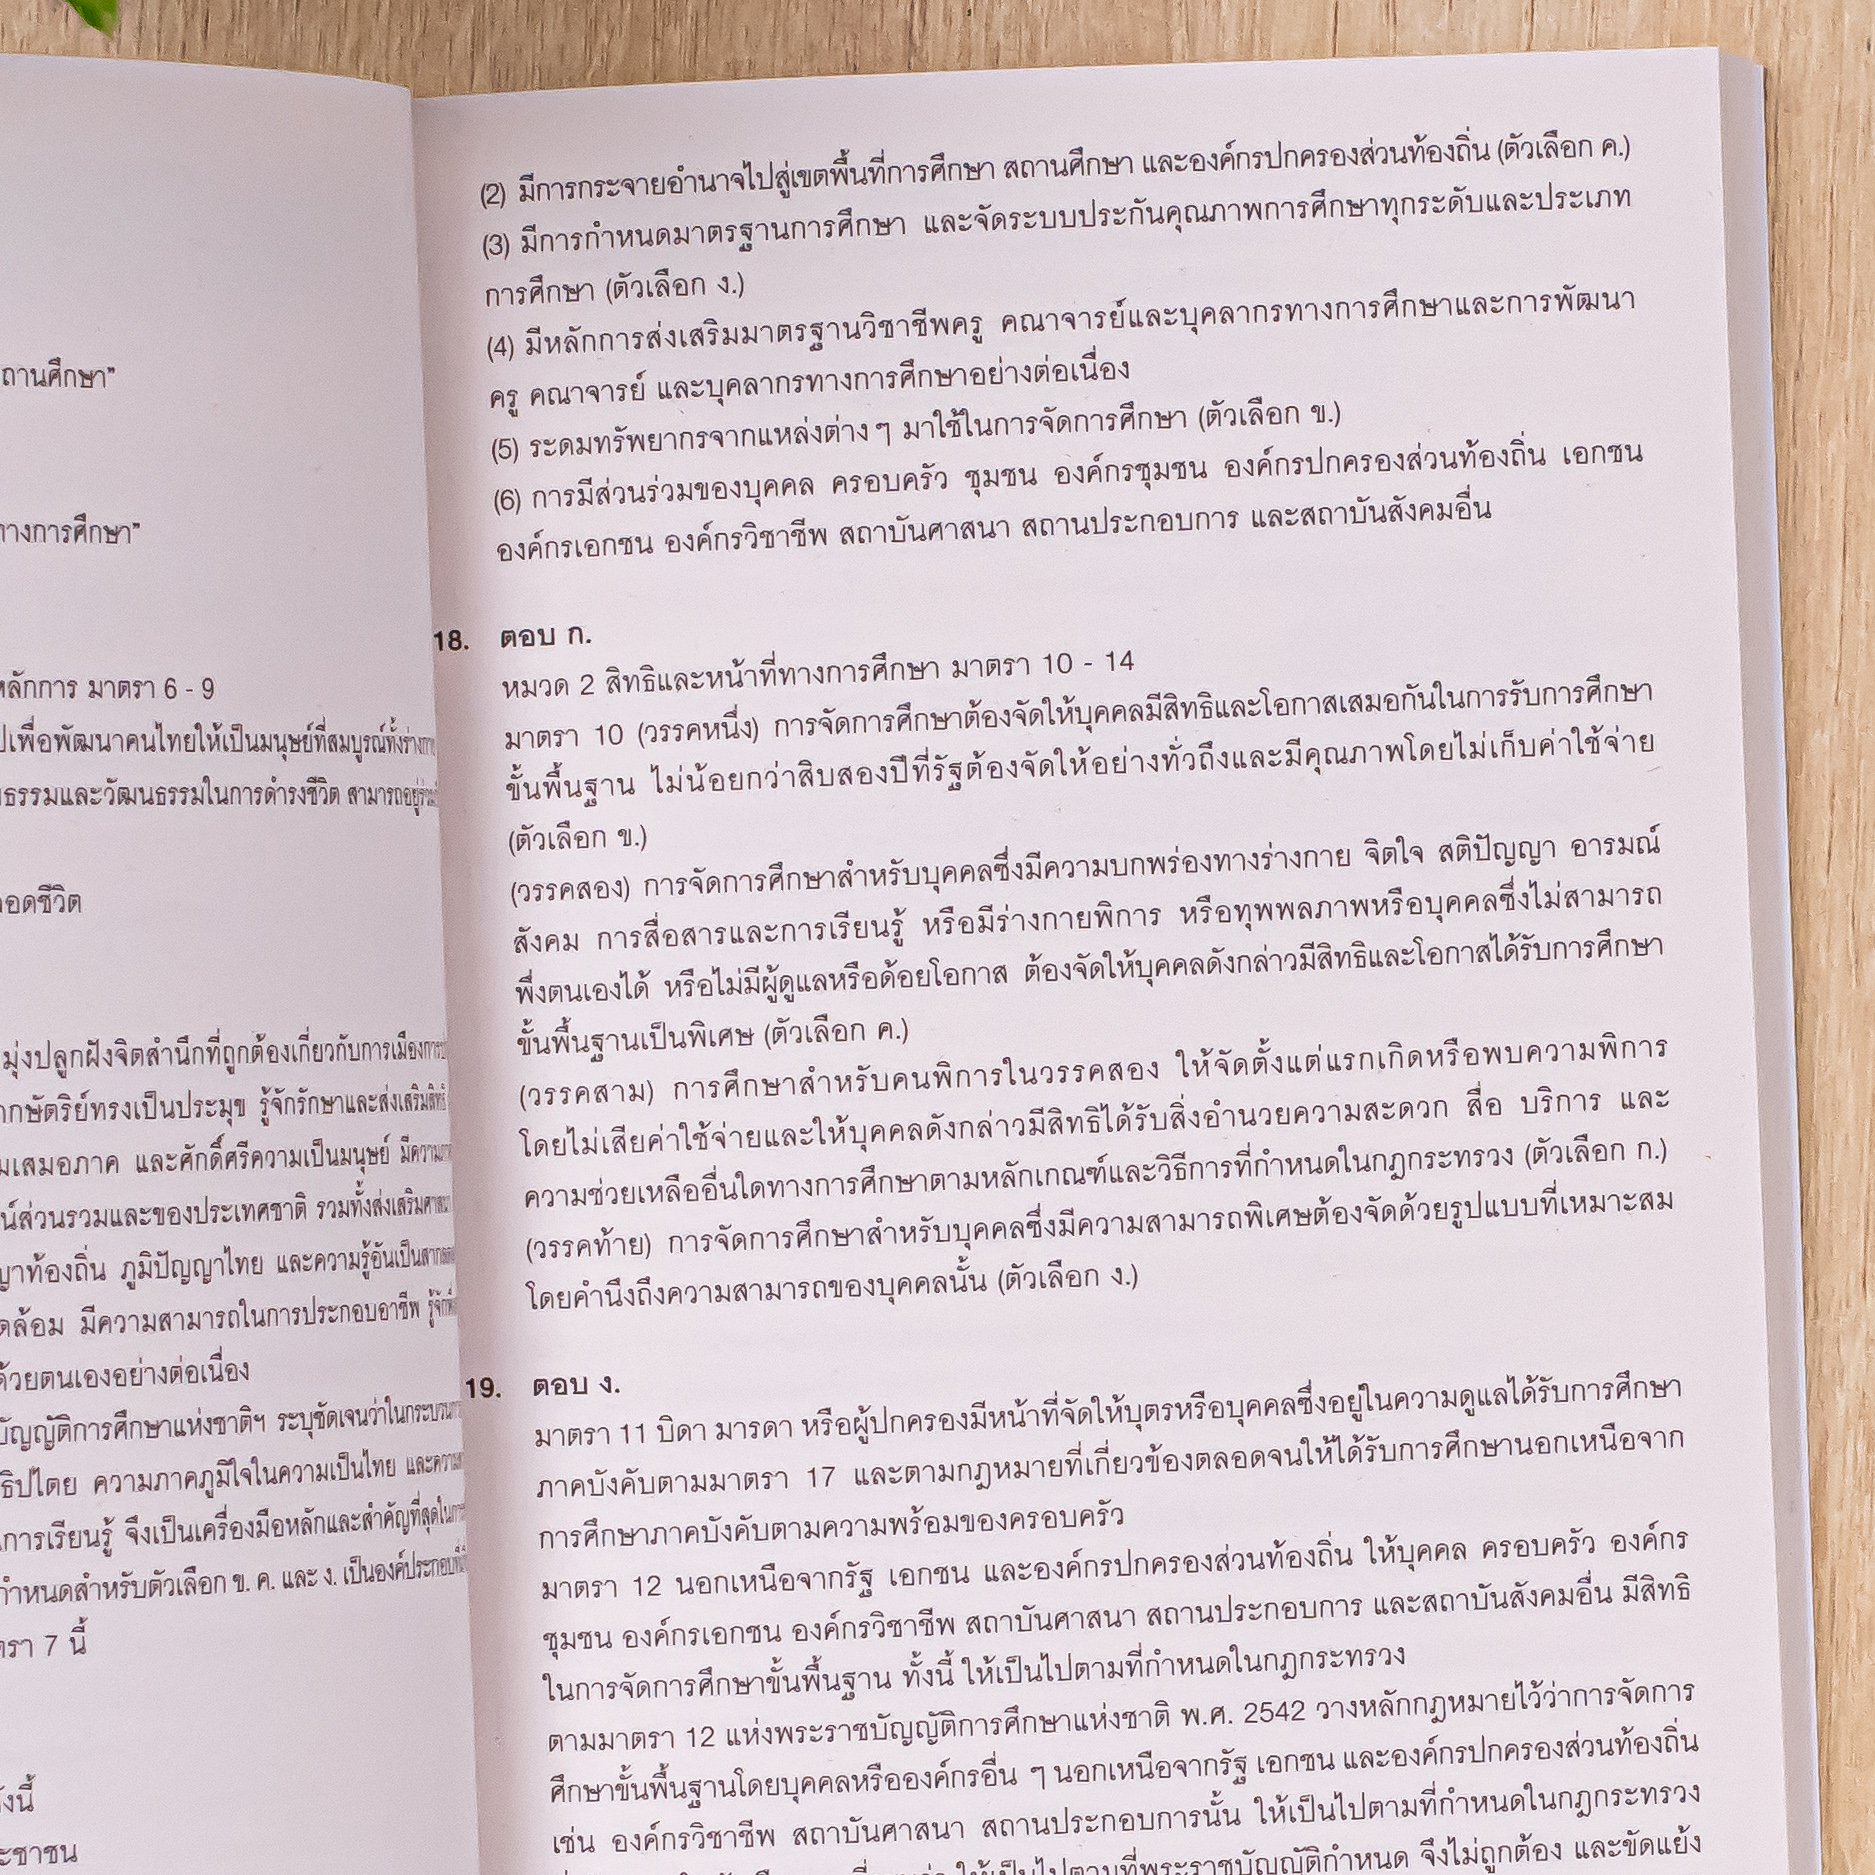 ถานศึกษา”
ทางการศึกษา”
หลักการ มาตรา 6 - 9
เพื่อพัฒนาคนไทยให้เป็นมนุษย์ที่สมบูรณ์ทั้งร่างกาย
ธรรมและวัฒนธรรมในการดำรงชีวิต สามารถอยู่ร่วม
อดชีวิต
มุ่งปลูกฝังจิตสำนึกที่ถูกต้องเกี่ยวกับการเมืองการ
กษัตริย์ทรงเป็นประมุข รู้จักรักษาและส่งเสริมสิทธิ
มเสมอภาค และศักดิ์ศรีความเป็นมนุษย์
น์ส่วนรวมและของประเทศชาติ รวมทั้งส่งเสริมศาสนา
ญาท้องถิ่น ภูมิปัญญาไทย และความรู้อันเป็นสากล
ดล้อม มีความสามารถในการประกอบอาชีพ
ด้วยตนเองอย่างต่อเนื่อง
บัญญัติการศึกษาแห่งชาติฯ ระบุชัดเจนว่าในกระบวนการ
ธิปไตย ความภาคภูมิใจในความเป็นไทย
การเรียนรู้ จึงเป็นเครื่องมือหลักและสำคัญที่สุดใน
กำหนดสำหรับตัวเลือก ข. ค. และ ง. เป็นองค์ประกอบ
ตรา 7 นี้
ังนี้
ะชาชน
(2) มีการกระจายอำนาจไปสู่เขตพื้นที่การศึกษา สถานศึกษา และองค์กรปกครองส่วนท้องถิ่น (ตัวเลือก ค.)
(3) มีการกำหนดมาตรฐานการศึกษา และจัดระบบประกันคุณภาพการศึกษาทุกระดับและประเภท
การศึกษา (ตัวเลือก ง.)
(4) มีหลักการส่งเสริมมาตรฐานวิชาชีพครู คณาจารย์และบุคลากรทางการศึกษาและการพัฒนา
ครู คณาจารย์ และบุคลากรทางการศึกษาอย่างต่อเนื่อง
(5) ระดมทรัพยากรจากแหล่งต่าง ๆ มาใช้ในการจัดการศึกษา (ตัวเลือก ข.)
(6) การมีส่วนร่วมของบุคคล ครอบครัว ชุมชน องค์กรชุมชน องค์กรปกครองส่วนท้องถิ่น เอกชน
องค์กรเอกชน องค์กรวิชาชีพ สถาบันศาสนา สถานประกอบการ และสถาบันสังคมอื่น
18. ตอบ ก.
หมวด 2 สิทธิและหน้าที่ทางการศึกษา มาตรา 10 - 14
มาตรา 10 (วรรคหนึ่ง) การจัดการศึกษาต้องจัดให้บุคคลมีสิทธิและโอกาสเสมอกันในการรับการศึกษา
ขั้นพื้นฐาน ไม่น้อยกว่าสิบสองปีที่รัฐต้องจัดให้อย่างทั่วถึงและมีคุณภาพโดยไม่เก็บค่าใช้จ่าย
(ตัวเลือก ข.)
(วรรคสอง) การจัดการศึกษาสำหรับบุคคลซึ่งมีความบกพร่องทางร่างกาย จิตใจ สติปัญญา อารมณ์
สังคม การสื่อสารและการเรียนรู้ หรือมีร่างกายพิการ หรือทุพพลภาพหรือบุคคลซึ่งไม่สามารถ
พึ่งตนเองได้ หรือไม่มีผู้ดูแลหรือด้อยโอกาส ต้องจัดให้บุคคลดังกล่าวมีสิทธิและโอกาสได้รับการศึกษา
ขั้นพื้นฐานเป็นพิเศษ (ตัวเลือก ค.)
(วรรคสาม) การศึกษาสำหรับคนพิการในวรรคสอง ให้จัดตั้งแต่แรกเกิดหรือพบความพิการ
โดยไม่เสียค่าใช้จ่ายและให้บุคคลดังกล่าวมีสิทธิได้รับสิ่งอำนวยความสะดวก สื่อ บริการ และ
ความช่วยเหลืออื่นใดทางการศึกษาตามหลักเกณฑ์และวิธีการที่กำหนดในกฎกระทรวง (ตัวเลือก ก.)
(วรรคท้าย) การจัดการศึกษาสำหรับบุคคลซึ่งมีความสามารถพิเศษต้องจัดด้วยรูปแบบที่เหมาะสม
โดยคำนึงถึงความสามารถของบุคคลนั้น (ตัวเลือก ง.)
19. ตอบ ง.
มาตรา 11 บิดา มารดา หรือผู้ปกครองมีหน้าที่จัดให้บุตรหรือบุคคลซึ่งอยู่ในความดูแลได้รับการศึกษา
ภาคบังคับตามมาตรา 17 และตามกฎหมายที่เกี่ยวข้องตลอดจนให้ได้รับการศึกษานอกเหนือจาก
การศึกษาภาคบังคับตามความพร้อมของครอบครัว
มาตรา 12 นอกเหนือจากรัฐ เอกชน และองค์กรปกครองส่วนท้องถิ่น ให้บุคคล ครอบครัว องค์กร
ชุมชน องค์กรเอกชน องค์กรวิชาชีพ สถาบันศาสนา สถานประกอบการ และสถาบันสังคมอื่น มีสิทธิ
ในการจัดการศึกษาขั้นพื้นฐาน ทั้งนี้ ให้เป็นไปตามที่กำหนดในกฎกระทรวง
ตามมาตรา 12 แห่งพระราชบัญญัติการศึกษาแห่งชาติ พ.ศ. 2542 วางหลักกฎหมายไว้ว่าการจัดการ
ศึกษาขั้นพื้นฐานโดยบุคคลหรือองค์กรอื่น ๆ นอกเหนือจากรัฐ เอกชน และองค์กรปกครองส่วนท้องถิ่น
เช่น องค์กรวิชาชีพ สถาบันศาสนา สถานประกอบการนั้น ให้เป็นไปตามที่กำหนดในกฎกระทรวง
ให้เป็นไปตามที่พระราชบัญญัติกำหนด จึงไม่ถูกต้อง และขัดแย้ง